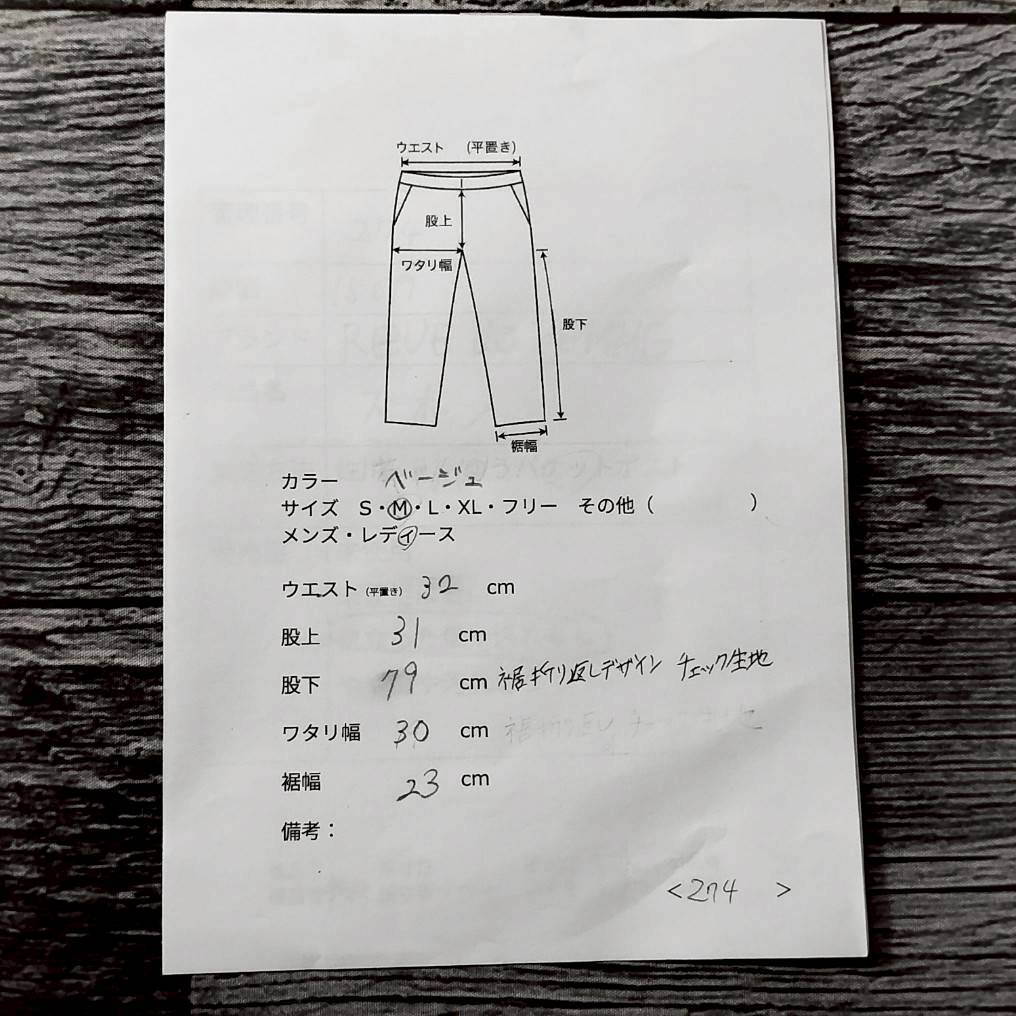 ウエスト (平置き)
股上
ワタリ幅
股下
裾幅
カラー ベージュ
サイズ S・M・L・XL・フリー その他( )
メンズ・レディース
ウエスト(平置き) 32 cm
股上 31 cm
股下 79 cm 裾折り返しデザイン チェック生地
ワタリ幅 30 cm
裾幅 23 cm
備考：
<274 >